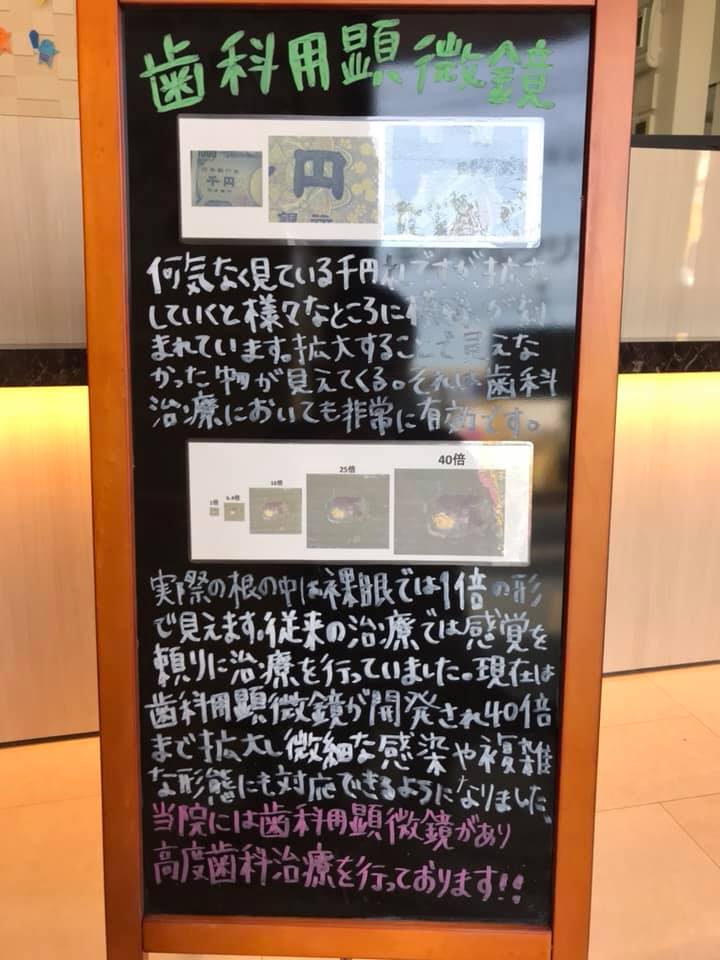 歯科用顕微鏡
1000
千円
円
銀
何気なく見ている千円札ですが拡大
していくと様々なところに模様が刻
まれています。拡大することで見えな
かった物が見えてくる。それは歯科
治療においても非常に有効です。
1倍 10倍 25倍 40倍
実際の根の中は裸眼では1倍の形
で見えます。従来の治療では感覚を
頼りに治療を行っていました。現在は
歯科用顕微鏡が開発され40倍
まで拡大し微細な感染や複雑
な形態にも対応できるようになりました。
当院には歯科用顕微鏡があり
高度歯科治療を行っております!!